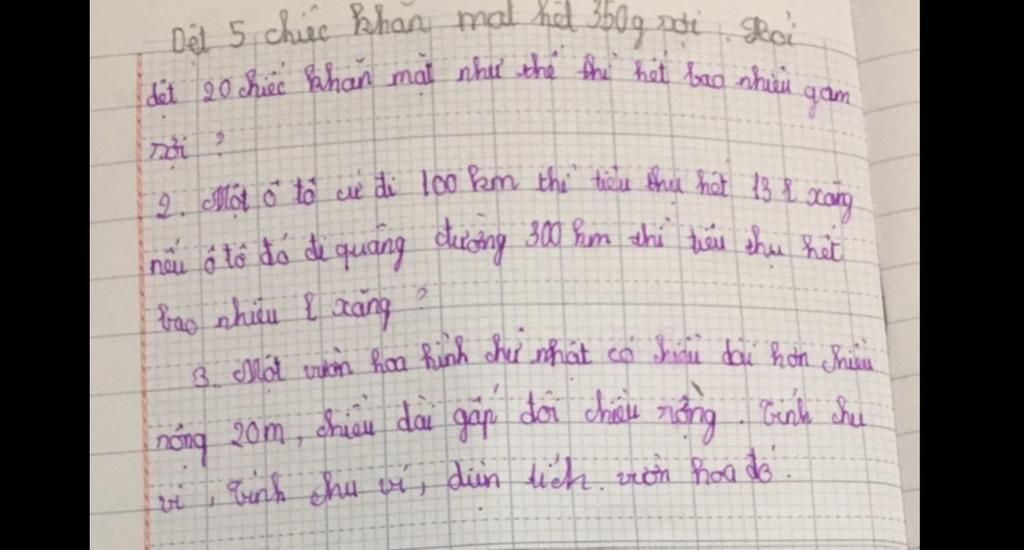 Dệt 5 chiếc khăn mặt hết 350g sợi. Hỏi
dệt 20 chiếc khăn mặt như thế thì hết bao nhiêu gam
sợi ?
2. Một ô tô cứ đi 100 km thì tiêu thụ hết 13 l xăng
nếu ô tô đó đi quãng đường 300 km thì tiêu thụ hết
bao nhiêu l xăng ?
3. Một vườn hoa hình chữ nhật có chiều dài hơn chiều
rộng 20m, chiều dài gấp đôi chiều rộng. Tính chu
vi, tính chu vi, diện tích. vườn hoa đó.